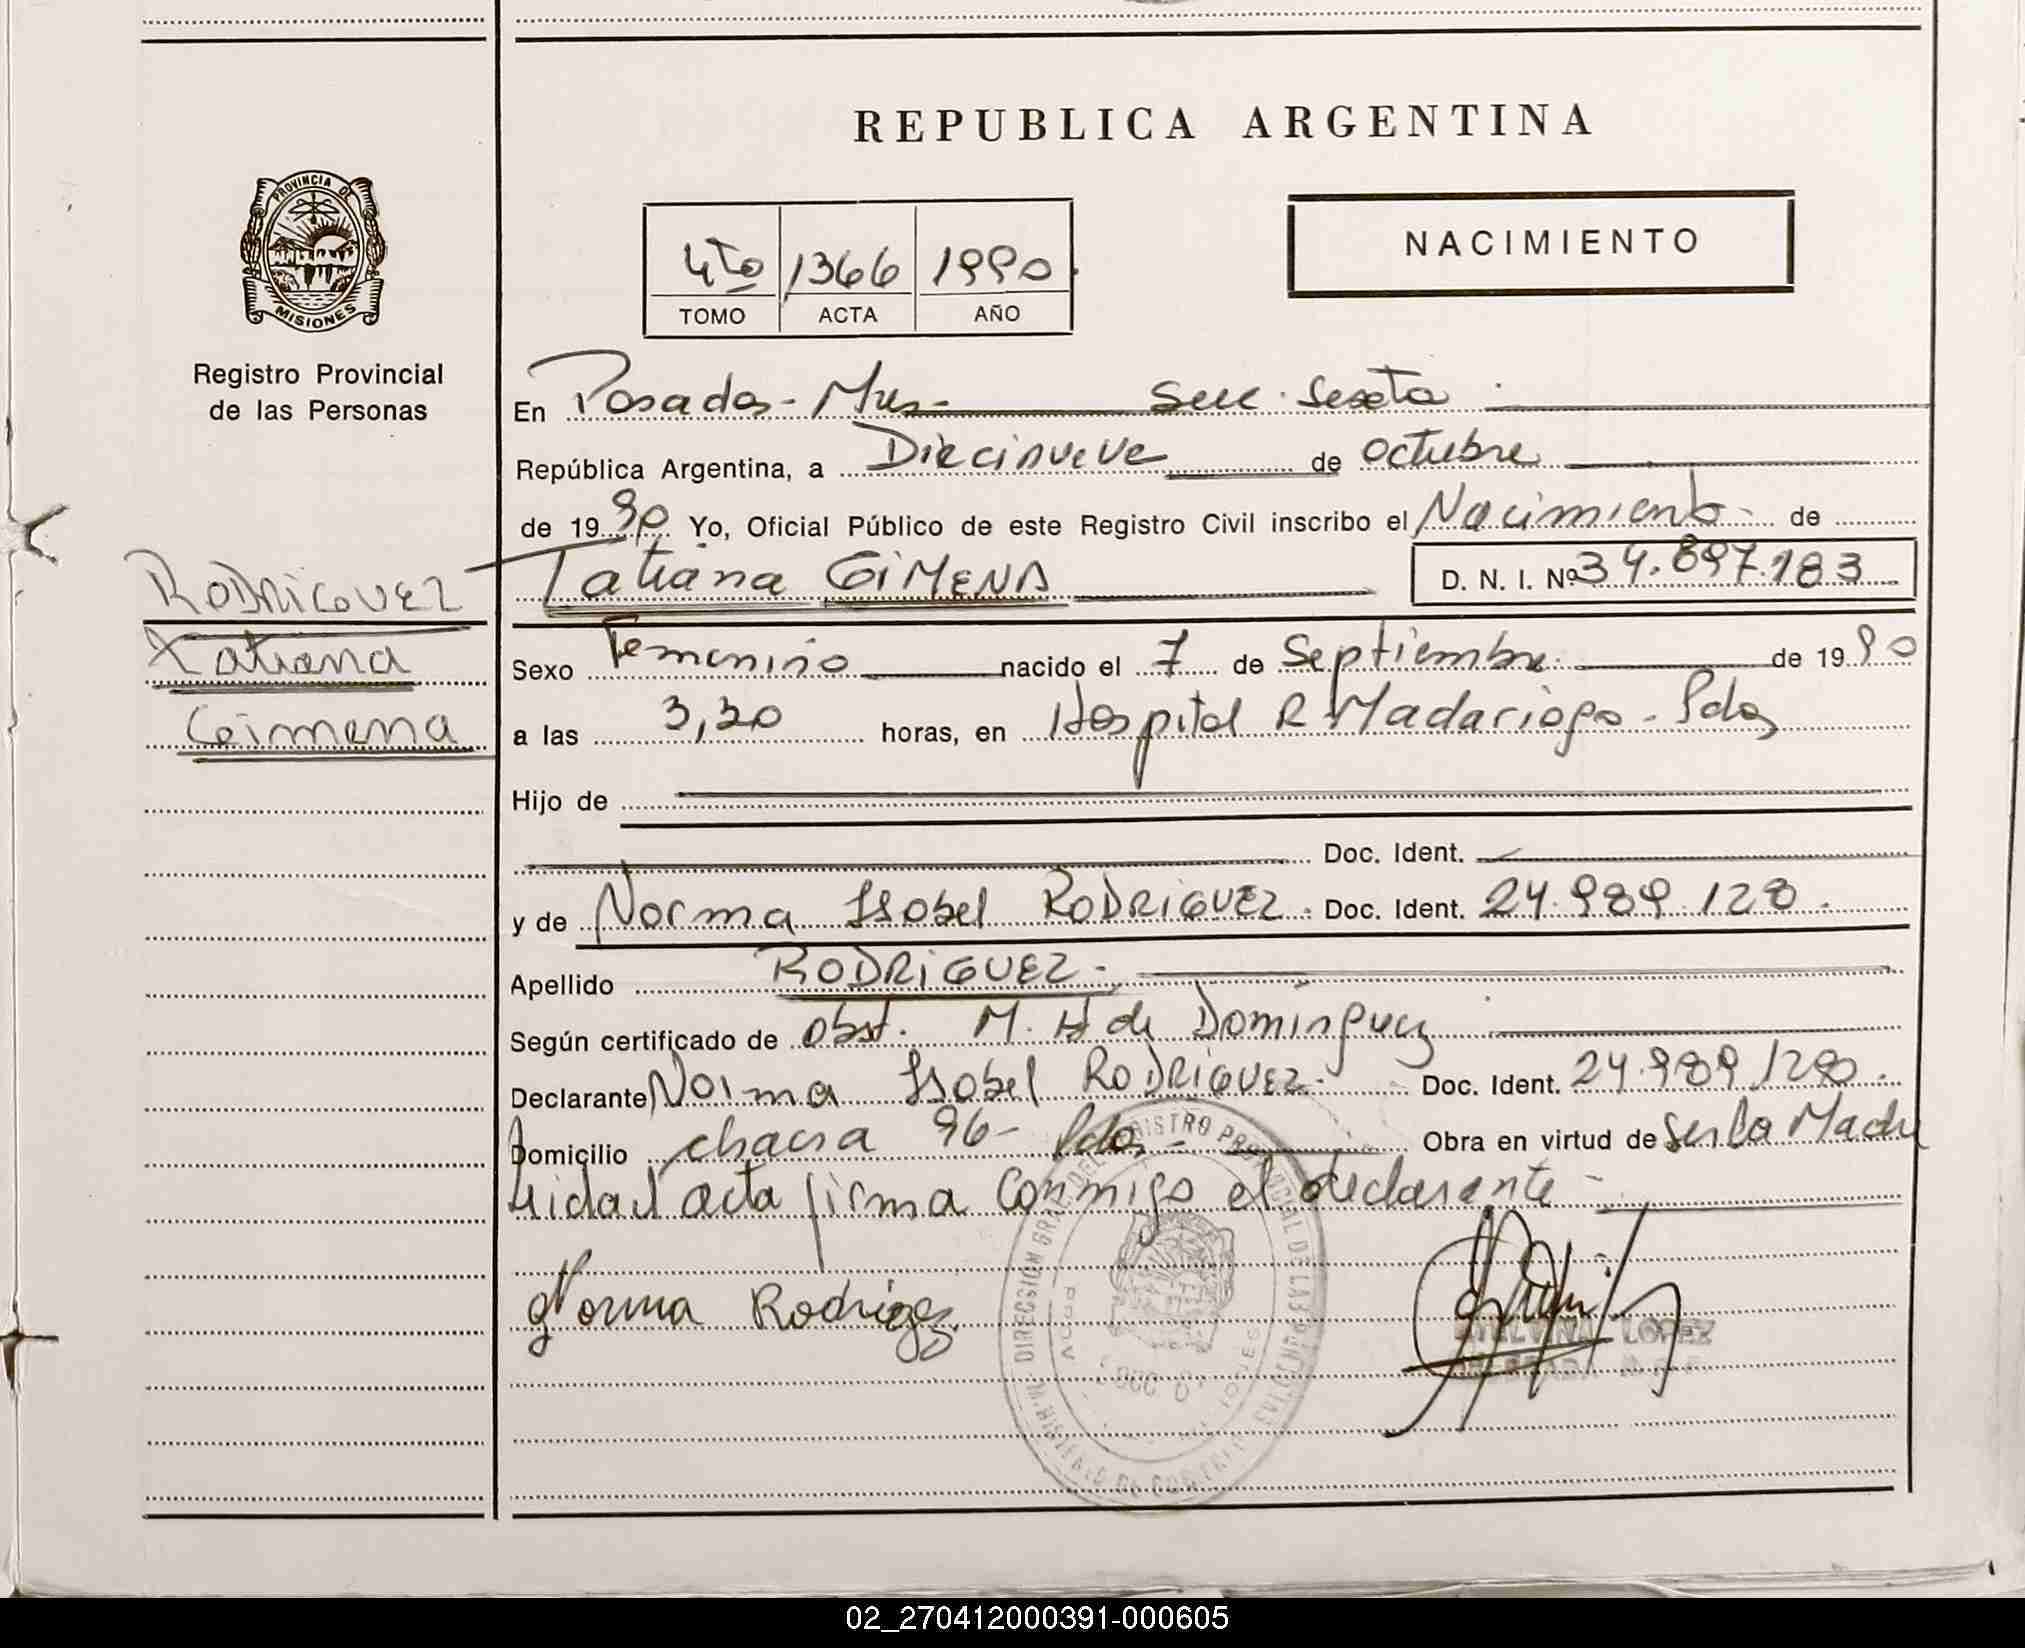 REPUBLICA ARGENTINA
PROVINCIA DE
MISIONES
Registro Provincial
de las Personas
4to 1366 1990
TOMO ACTA AÑO
NACIMIENTO
En Posadas - Mnes - Secc. Sexta
República Argentina, a Diecinueve de octubre
de 1990 Yo, Oficial Público de este Registro Civil inscribo el Nacimiento de
RODRIGUEZ
Tatiana
Gimena
Tatiana GIMENA D. N. I. Nº 34.897.183
Sexo Femenino nacido el 7 de Septiembre de 1990
a las 3,30 horas, en Hospital R Madariaga - Pdas
Hijo de
Doc. Ident.
y de Norma Isabel RODRIGUEZ. Doc. Ident. 24.989.128.
Apellido RODRIGUEZ.
Según certificado de obst. M. H de Dominguez
Declarante Norma Isabel RODRIGUEZ. Doc. Ident. 24.989.128.
Domicilio chacra 96 - Pdas - Obra en virtud de ser la Madre
leida el acta firma conmigo el declarante -
Norma Rodrigez
LOPEZ
02_270412000391-000605